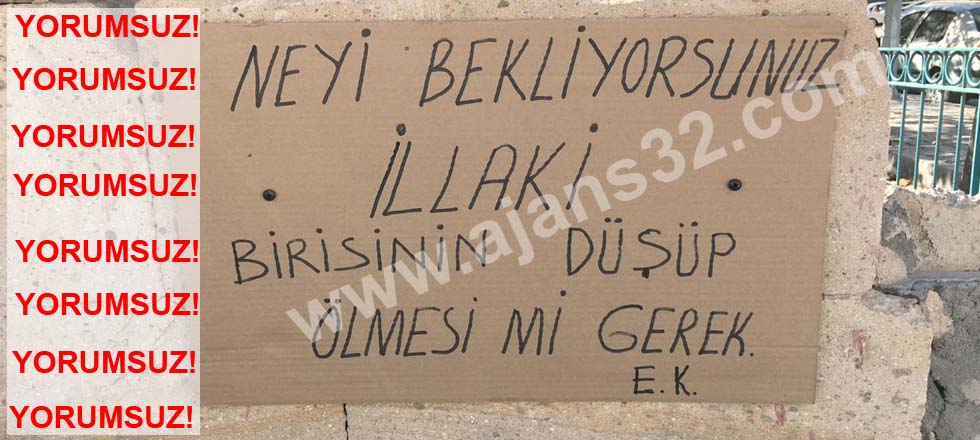 YORUMSUZ!
YORUMSUZ!
YORUMSUZ!
YORUMSUZ!
YORUMSUZ!
YORUMSUZ!
YORUMSUZ!
YORUMSUZ!
NEYİ BEKLİYORSUNUZ
İLLAKİ
BİRİSİNİN DÜŞÜP
ÖLMESİ Mİ GEREK.
E.K.
www.ajans32.com